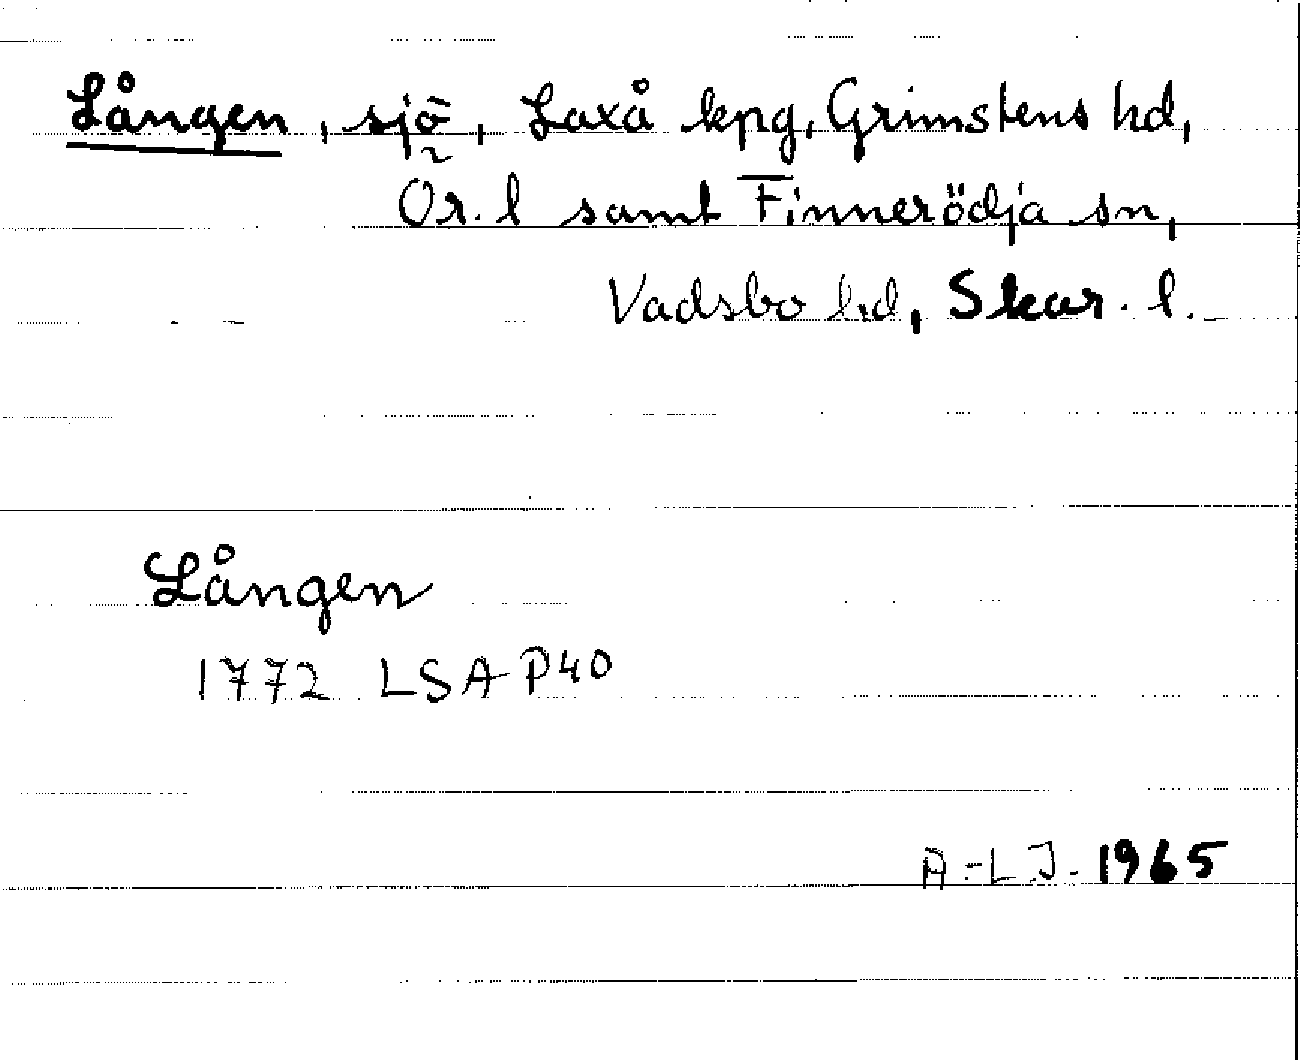 Lången, sjö, Laxå kpg, Grimstens hd,
Ör. l samt Finnerödja sn,
Vadsbo hd, Skar. l.
Lången
1772 LSA P40
A-LJ. 1965